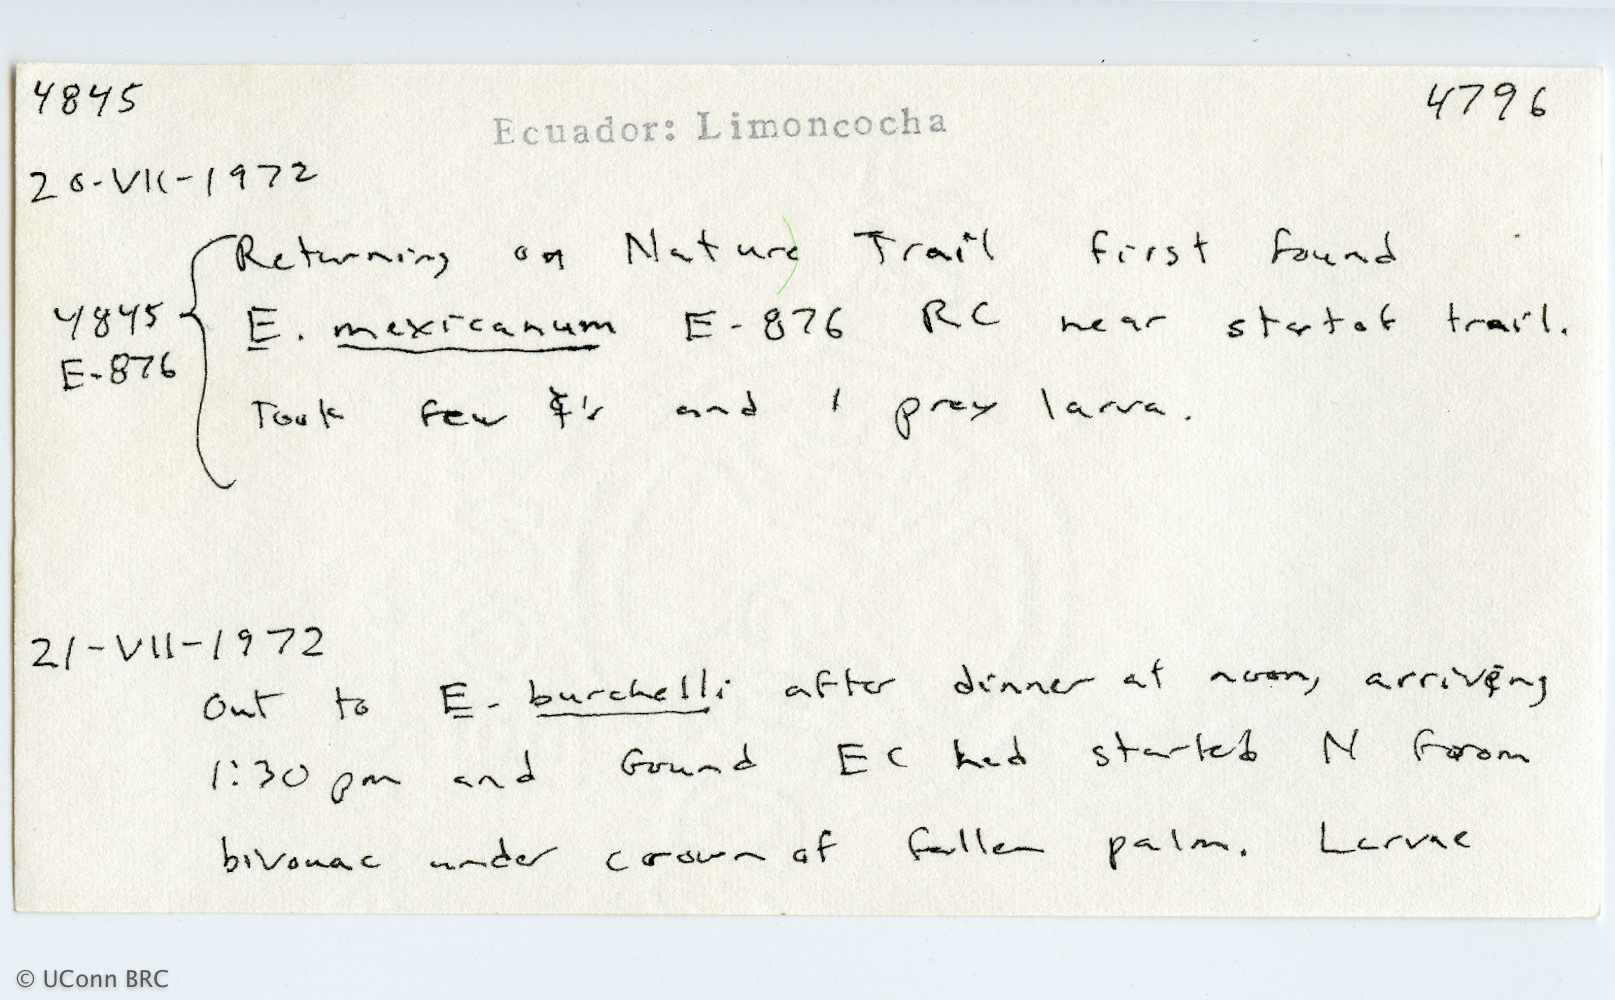 4845
4796
Ecuador: Limoncocha
20-VII-1972
Returning on Nature Trail first found
4845
E. mexicanum E-876 RC near start of trail.
E-876
Took few ☿'s and 1 prey larva.
21-VII-1972
Out to E. burchelli after dinner at noon, arriving
1:30 pm and found EC had started N from
bivouac under crown of fallen palm. Larvae
© UConn BRC